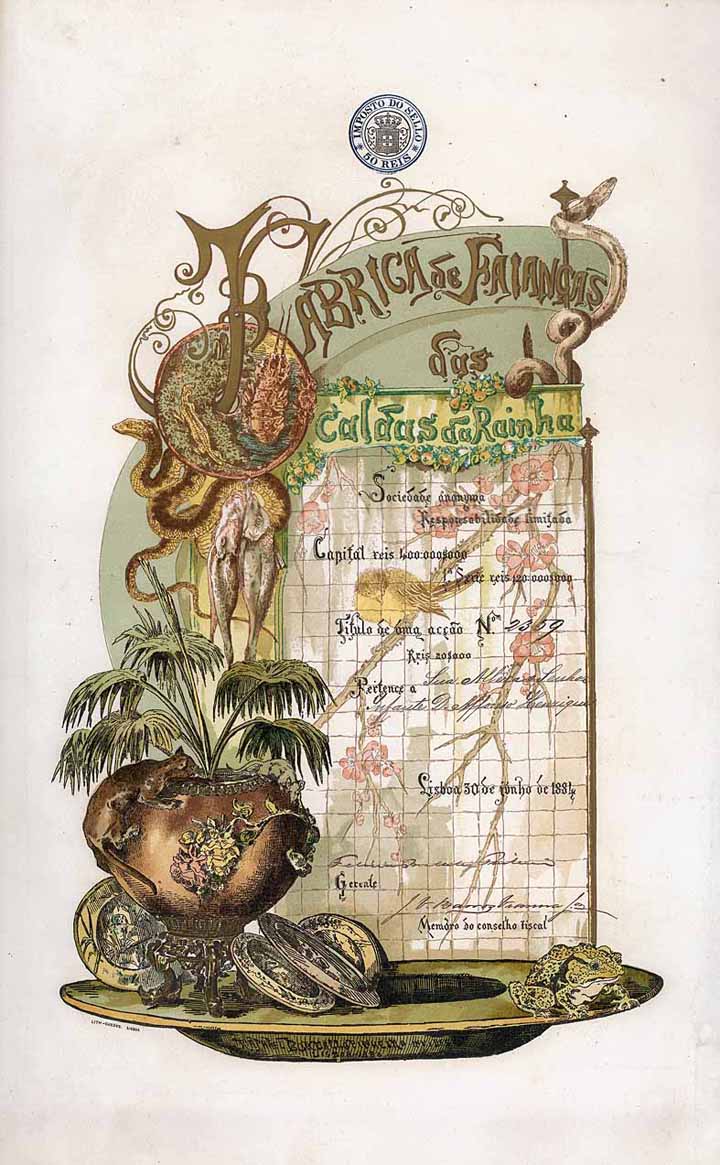 IMPOSTO DO SELLO
50 REIS
FABRICA de FAIANÇAS
das
Caldas da Rainha
Sociedade anonyma
Responsabilidade limitada
Capital reis 400:000$000
1ª Serie reis 120:000$000
Titulo de uma acção N.º 2359
Reis 20$000
Pertence a Sua Alteza o Senhor
Infante D. Affonso Henriques
Lisboa 30 de junho de 1884
Gerente
Membro do conselho fiscal
LITH-GUEDES. LISBOA